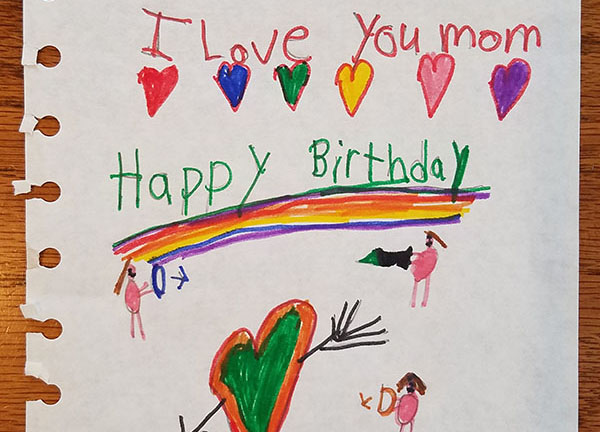 I Love You mom
Happy Birthday